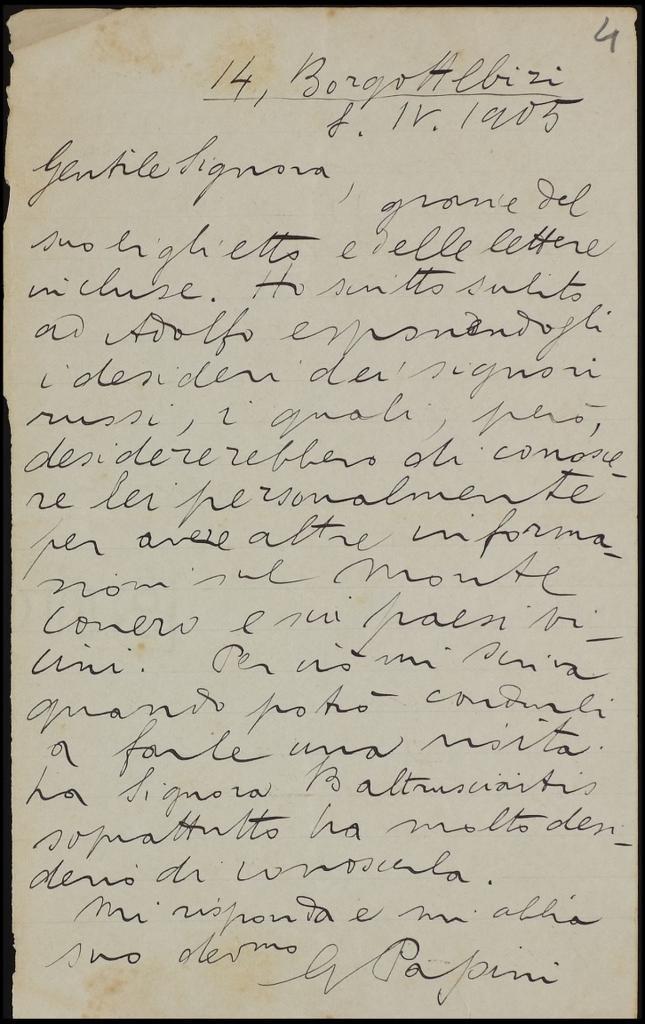 4
14, Borgo Albizi
8. IV. 1905
Gentile Signora,
grazie del
suo biglietto e delle lettere
incluse. Ho scritto subito
ad Adolfo esponendogli
i desideri dei signori
russi, i quali, però,
desidererebbero di conosce-
re lei personalmente
per avere altre informa-
zioni sul Monte
Conero e sui paesi vi-
cini. Per ciò mi scriva
quando potrò condurli
a farle una visita.
La Signora Baltrusciaitis
soprattutto ha molto desi-
derio di conoscerla.
Mi risponda e mi abbia
suo devmo G Papini